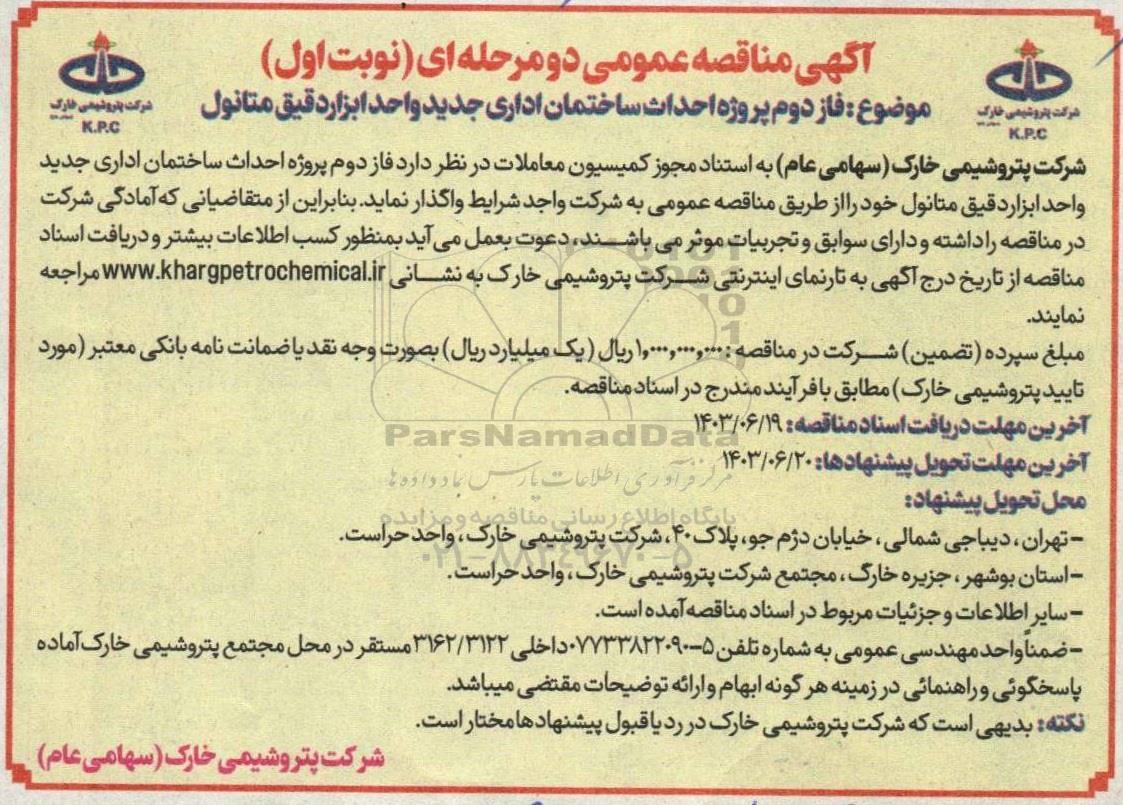 آگهی مناقصه عمومی دو مرحله ای (نوبت اول)
شرکت پتروشیمی خارک
K.P.C
شرکت پتروشیمی خارک
K.P.C
موضوع: فاز دوم پروژه احداث ساختمان اداری جدید واحد ابزار دقیق متانول
شرکت پتروشیمی خارک (سهامی عام) به استناد مجوز کمیسیون معاملات در نظر دارد فاز دوم پروژه احداث ساختمان اداری جدید
واحد ابزار دقیق متانول خود را از طریق مناقصه عمومی به شرکت واجد شرایط واگذار نماید. بنابراین از متقاضیانی که آمادگی شرکت
در مناقصه را داشته و دارای سوابق و تجربیات موثر می باشند، دعوت بعمل می آید بمنظور کسب اطلاعات بیشتر و دریافت اسناد
مناقصه از تاریخ درج آگهی به تارنمای اینترنتی شرکت پتروشیمی خارک به نشانی www.khargpetrochemical.ir مراجعه
نمایند.
مبلغ سپرده (تضمین) شرکت در مناقصه: ۱,۰۰۰,۰۰۰,۰۰۰ ریال (یک میلیارد ریال) بصورت وجه نقد یا ضمانت نامه بانکی معتبر (مورد
تایید پتروشیمی خارک) مطابق با فرآیند مندرج در اسناد مناقصه.
آخرین مهلت دریافت اسناد مناقصه: ۱۴۰۳/۰۶/۱۹
ParsNamadData
آخرین مهلت تحویل پیشنهادها: ۱۴۰۳/۰۶/۲۰
مرکز فرآوری اطلاعات پارس نماد داده ها
محل تحویل پیشنهاد:
پایگاه اطلاع رسانی مناقصه و مزایده
- تهران، دیباجی شمالی، خیابان دژم جو، پلاک ۴۰، شرکت پتروشیمی خارک، واحد حراست.
۰۲۱-۸۸۳۴۹۶۷۰-۵
- استان بوشهر، جزیره خارگ، مجتمع شرکت پتروشیمی خارک، واحد حراست.
- سایر اطلاعات و جزئیات مربوط در اسناد مناقصه آمده است.
- ضمناً واحد مهندسی عمومی به شماره تلفن ۵-۰۷۷۳۳۸۲۲۰۹۰ داخلی ۳۱۶۲/۳۱۲۲ مستقر در محل مجتمع پتروشیمی خارک آماده
پاسخگوئی و راهنمائی در زمینه هر گونه ابهام و ارائه توضیحات مقتضی میباشد.
نکته: بدیهی است که شرکت پتروشیمی خارک در رد یا قبول پیشنهادها مختار است.
شرکت پتروشیمی خارک (سهامی عام)